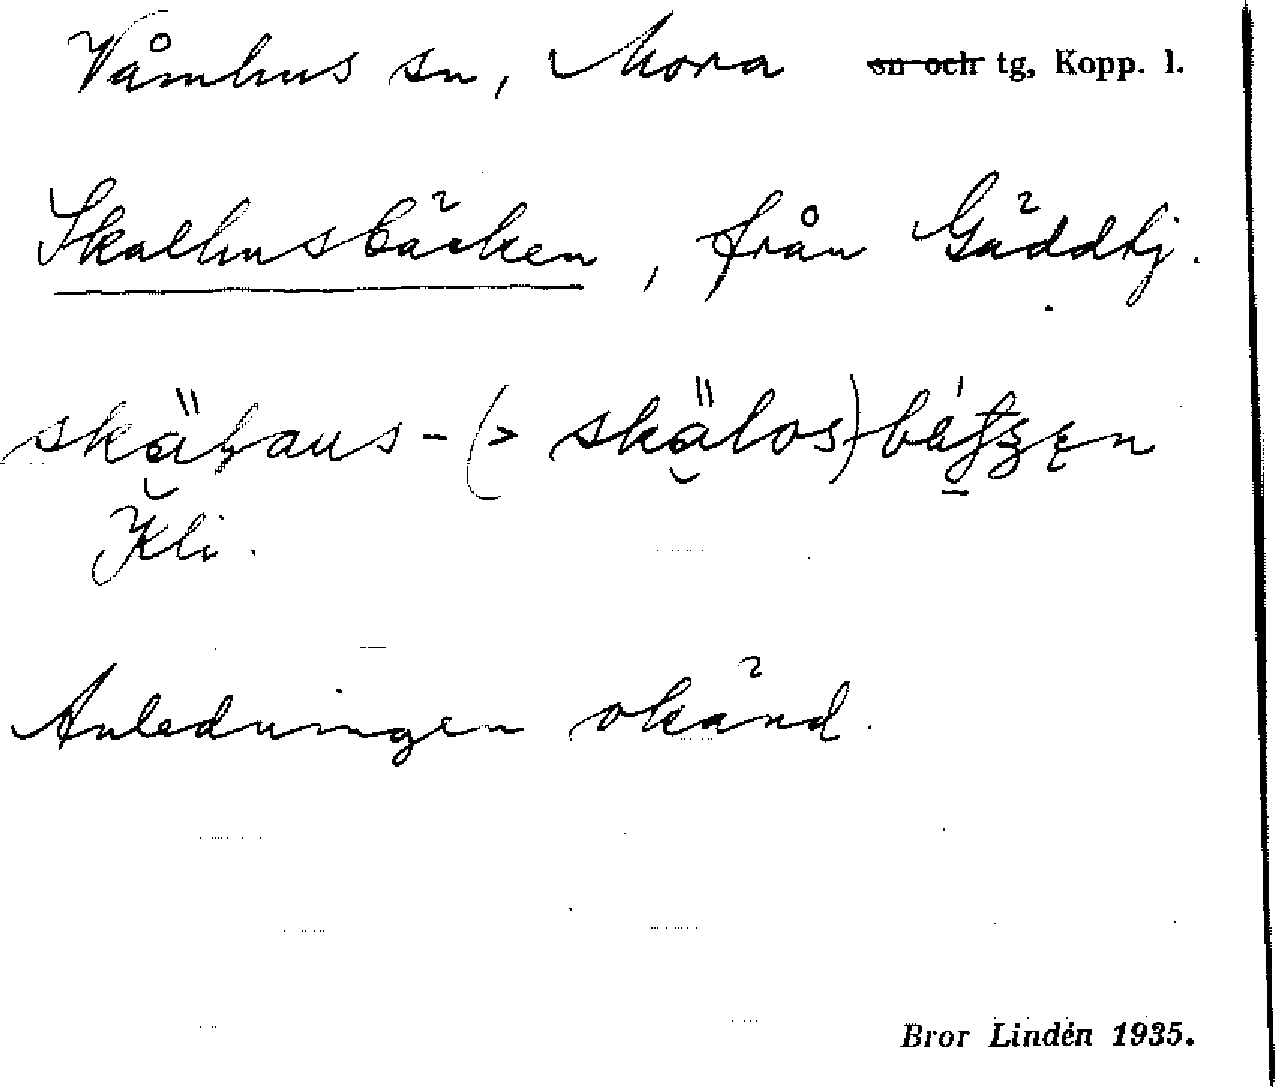 Våmhus sn, Mora sn och tg, Kopp. l.
Skalhusbäcken, från Gäddtj.
Kli.
Anledningen okänd.
Bror Lindén 1935.